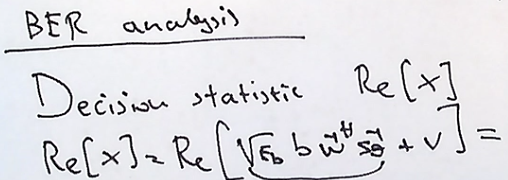 BER analysis
Decision statistic Re[x]
Re[x] = Re[√E_b b w^H s_θ + v] =